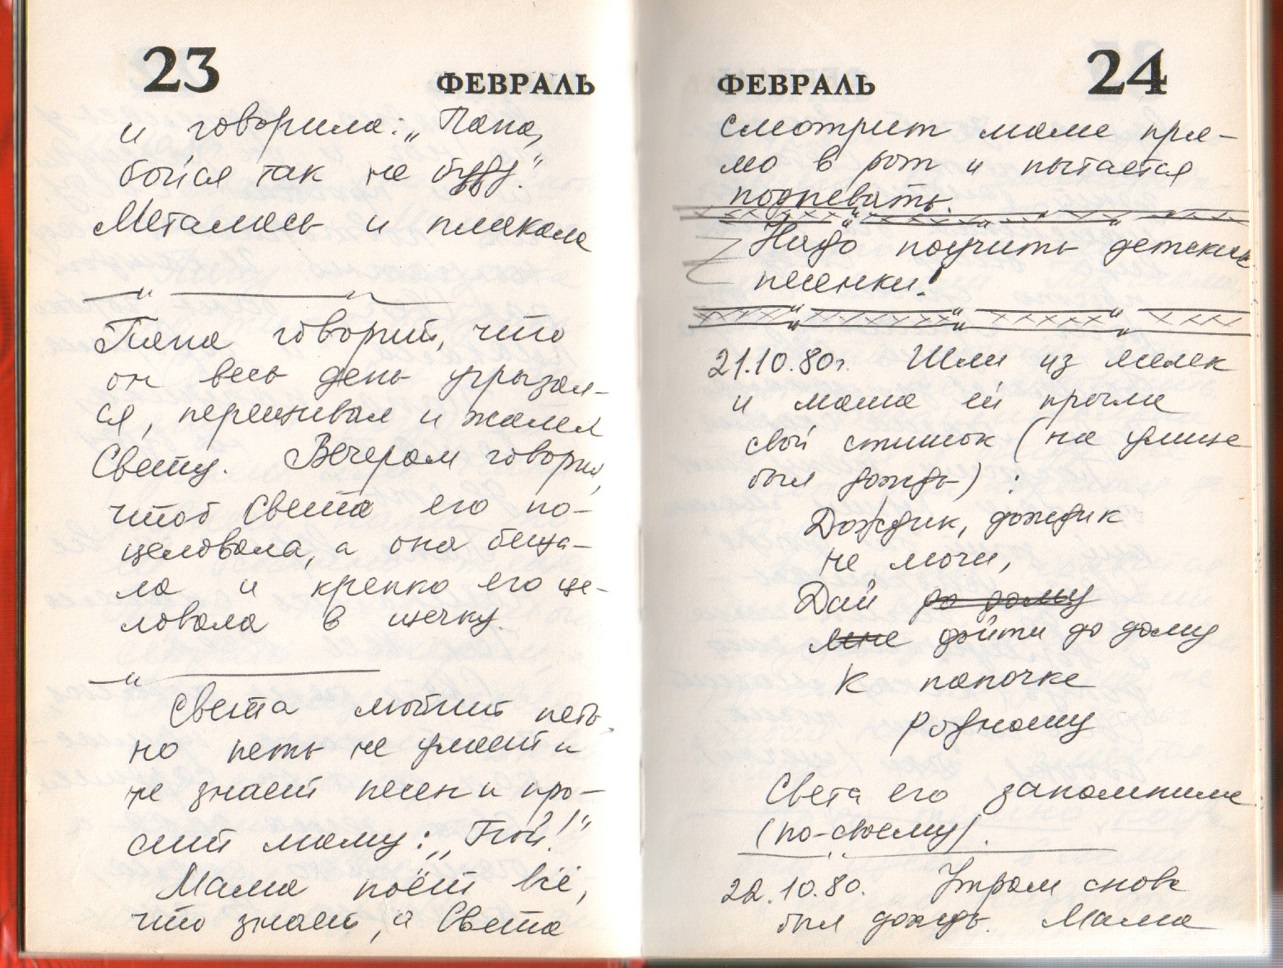 23
ФЕВРАЛЬ
и говорила: „Папа,
бойся так не буду".
Металась и плакала
Папа говорит, что
он весь день угрызал-
ся, переживал и жалел
Свету. Вечером говорил,
чтоб Света его по-
целовала, а она обеща-
ла и крепко его це-
ловала в щечку.
Света любит петь.
но петь не умеет и
не знает песен и про-
сит маму: „Пой!"
Мама поёт всё,
что знает, а Света
ФЕВРАЛЬ
24
смотрит маме пря-
мо в рот и пытается
подпевать.
Надо поучить детские
песенки!
21.10.80г. Шли из яслек
и мама ей прочла
свой стишок (на улице
был дождь):
Дождик, дождик
не мочи,
Дай до дому
мне дойти до дому
К папочке
родному
Света его запомнила
(по-своему).
22.10.80. Утром снова
был дождь. Мама